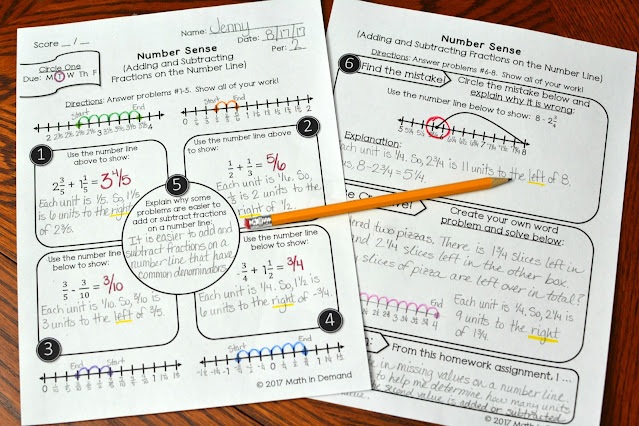 Score __ / __
Name: Jenny
Date: 8/17/17
Per: 2
Circle One
Due: M T W Th F
Number Sense
(Adding and Subtracting
Fractions on the Number Line)
Directions: Answer problems #1-5. Show all of your work!
Start End
Start End
1
Use the number line
above to show:
2 3/5 + 1 1/5 = 3 4/5
Each unit is 1/5. So, 1 1/5
is 6 units to the right
of 2 3/5.
2
Use the number line
above to show:
1/2 + 1/3 = 5/6
Each unit is 1/6. So,
1/3 is 2 units to the
right of 1/2.
5
Explain why some
problems are easier to
add or subtract fractions
on a number line:
It is easier to add and
subtract fractions on a
number line that have
common denominators.
3
Use the number line
below to show:
3/10
Each unit is 1/10. So, 3/10 is
3 units to the left of 3/5.
4
Use the number line
below to show:
- 3/4 + 1 1/2 = 3/4
Each unit is 1/4. So, 1 1/2 is
6 units to the right of -3/4.
End Start
Start End
© 2017 Math in Demand
Number Sense
(Adding and Subtracting Fractions on the Number Line)
Directions: Answer problems #6-8. Show all of your work!
6
Find the mistake!
Circle the mistake below and
explain why it is wrong:
Use the number line below to show: 8 - 2 3/4
Explanation:
Each unit is 1/4. So, 2 3/4 is 11 units to the left of 8.
8 - 2 3/4 = 5 1/4.
Create your own word
problem and solve below:
two pizzas. There is 1 3/4 slices left in
and 2 1/4 slices left in the other box.
slices of pizza are left over in total?
End
Each unit is 1/4. So, 2 1/4 is
9 units to the right
of 1 3/4.
From this homework assignment, I ...
in missing values on a number line.
to help me determine how many units
second value is added or subtracted.
© 2017 Math in Demand